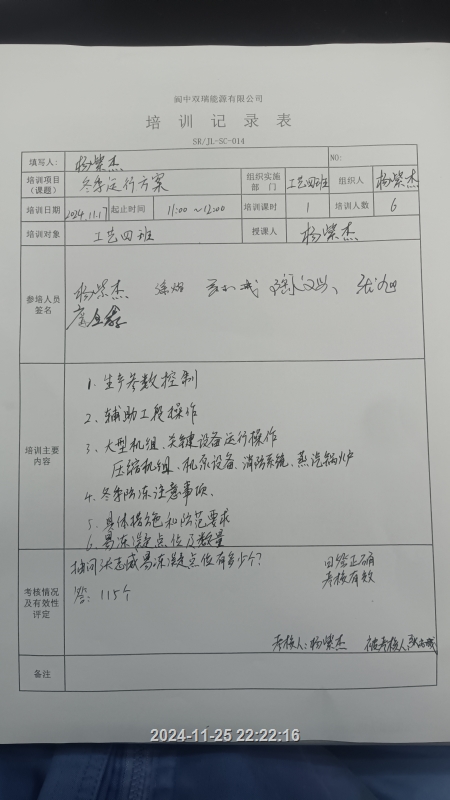 阆中双瑞能源有限公司
培训记录表
SR/JL-SC-014
填写人： 杨紫杰 NO:
培训项目（课题） 冬季运行方案 组织实施部门 工艺四班 组织人 杨紫杰
培训日期 2024.11.17 起止时间 11:00～12:00 培训课时 1 培训人数 6
培训对象 工艺四班 授课人 杨紫杰
参培人员签名 杨紫杰
培训主要内容
1. 生产参数控制
2、辅助工段操作
3、大型机组、关键设备运行操作
压缩机组、机泵设备、消防系统、蒸汽锅炉
4. 冬季防冻注意事项、
5. 具体措施和防范要求
6. 易冻凝点位及数量
考核情况及有效性评定
抽问张志诚易冻凝点位有多少个？
答：115个
回答正确
考核有效
考核人：杨紫杰 被考核人 张志诚
备注
2024-11-25 22:22:16